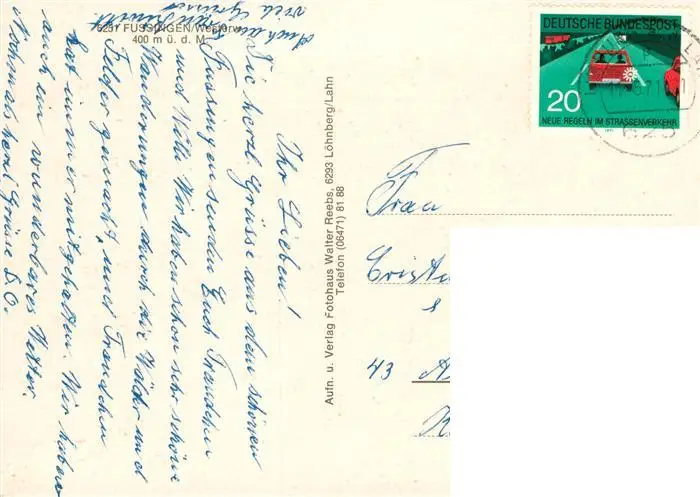 6251 FUSSINGEN/Westerw.
400 m ü. d. M.
Auch an
viele Grüsse
Ihr Lieben!
Die herzl. Grüsse aus dem schönen
Fussingen senden Euch Frauchen
und Willi. Wir haben schon sehr schöne
Wanderungen durch die Wälder und
Felder gemacht, und Frauchen
hat immer mitgehalten. Wir haben
auch ein wunderbares Wetter.
Nochmals herzl. Grüsse D.O.
Aufn. u. Verlag Fotohaus Walter Reebs, 6293 Löhnberg/Lahn
Telefon (06471) 81 88
DEUTSCHE BUNDESPOST
20
NEUE REGELN IM STRASSENVERKEHR
1971
625
Frau
43